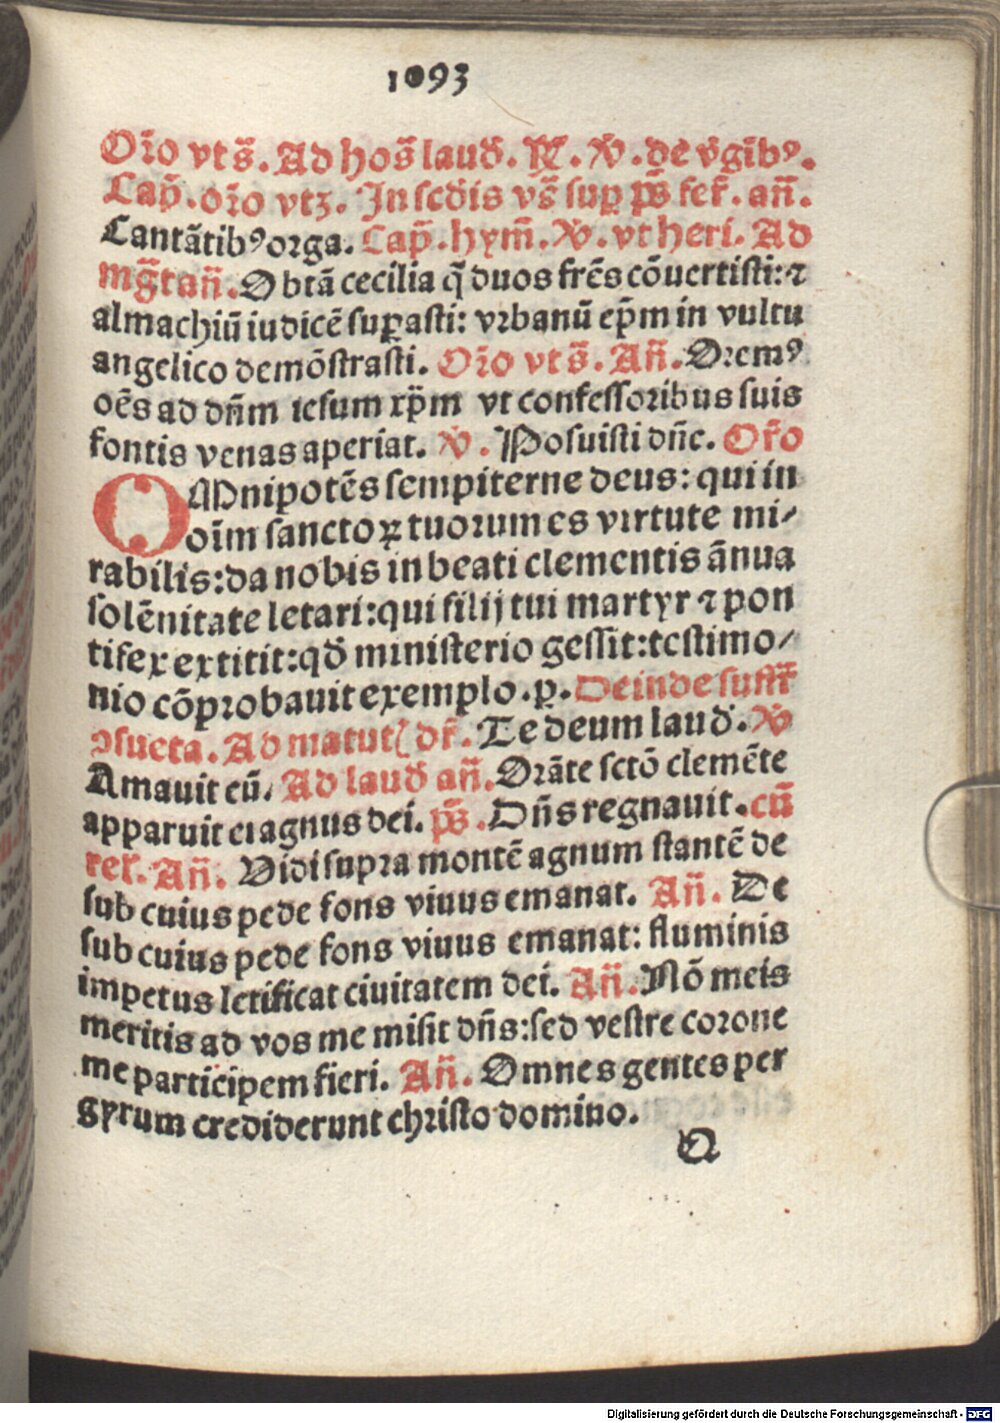 1093
Or̄o vt s̄. Ad hos̄ laud̄. ℟. ℣. de v̄gīb⁹.
Cap̄. or̄o vtꝫ. In scd̄is vs̄ suꝑ ps̄ fer̄. an̄.
Cantātib⁹ orga. Cap̄. hym̄. ℣. vt heri. Ad
mḡt an̄. O btā cecilia q̄ duos frēs cōuertisti: ⁊
almachiū iudicē suꝑasti: vrbanū ep̄m in vultu
angelico demōstrasti. Or̄o vt s̄. An̄. Orem⁹
oēs ad dn̄m iesum xp̄m vt confessoribus suis
fontis venas aperiat. ℣. Posuisti dn̄e. Or̄o
OMnipotēs sempiterne deus: qui in
oīm sanctoꝝ tuorum es virtute mi⸗
rabilis: da nobis in beati clementis ānua
solēnitate letari: qui filij tui martyr ⁊ pon
tifex extitit: qd̄ ministerio gessit: testimo⸗
nio cōprobauit exemplo. ꝑ. Deinde suffr̄
ↄsueta. Ad matut̄ dr̄. Te deum laud̄. ℣
Amauit eū. Ad laud̄ an̄. Orāte sctō clemēte
apparuit ei agnus dei. ps̄. Dn̄s regnauit. cū
rel̄. An̄. Vidi supra montē agnum stantē de
sub cuius pede fons viuus emanat. An̄. De
sub cuius pede fons viuus emanat: fluminis
impetus letificat ciuitatem dei. An̄. Nō meis
meritis ad vos me misit dn̄s: sed vestre corone
me participem fieri. An̄. Omnes gentes per
gyrum crediderunt christo domino.
Q
Digitalisierung gefördert durch die Deutsche Forschungsgemeinschaft - DFG